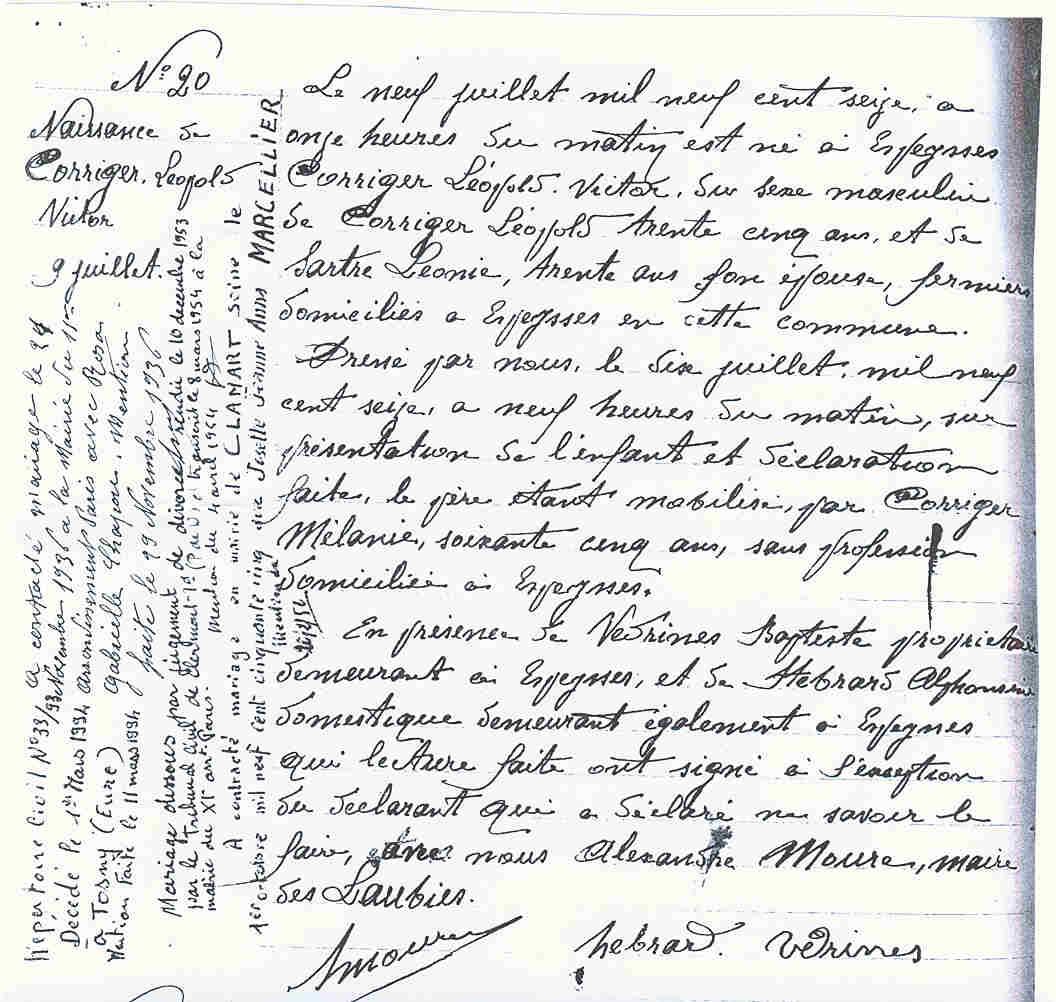 N° 20
Naissance de
Corriger. Léopold
Victor
9 juillet.
Le neuf juillet mil neuf cent seize, a
onze heures du matin est né à Espeysses
Corriger Léopold. Victor, du sexe masculin
de Corriger Léopold trente cinq ans, et de
Sartre Leonie, trente ans son épouse, fermiers
domiciliés a Espeysses en cette commune.
Dressé par nous, le dix juillet, mil neuf
cent seize, a neuf heures du matin, sur
présentation de l'enfant et déclaration
faite, le père étant mobilisé, par Corriger
Mélanie, soixante cinq ans, sans profession
domiciliée à Espeysses.
En présence de Vedrines Baptiste propriétaire
demeurant à Espeysses, et de Hebrard Alphonsine
domestique demeurant également à Espeysses
qui lecture faite ont signé à l'exception
du déclarant qui a déclaré ne savoir le
faire, avec nous Alexandre Moure, maire
des Laubies.
Amoure hebrard. Vedrines
Répertoire Civil N°33/93
Décédé le 1er Mars 1994
à Tosny (Eure)
Mention faite le 11 mars 1994
a contracté mariage le 24
Novembre 1936 à la Mairie du 11me
arrondissement Paris avec Rosa
Gabrielle Chapon. Mention
faite le 29 Novembre 1936
Mariage dissous par jugement de divorce rendu le 10 décembre 1953
par le Tribunal civil de Clermont-Fd (P de D) transcrit le 8 mars 1954 à la
mairie du XIe arrt Paris. Mention du 4 avril 1954
A contracté mariage en mairie de CLAMART Seine le
1er octobre mil neuf cent cinquante cinq avec Josette Jeanne Anna MARCELLIER
Mention du